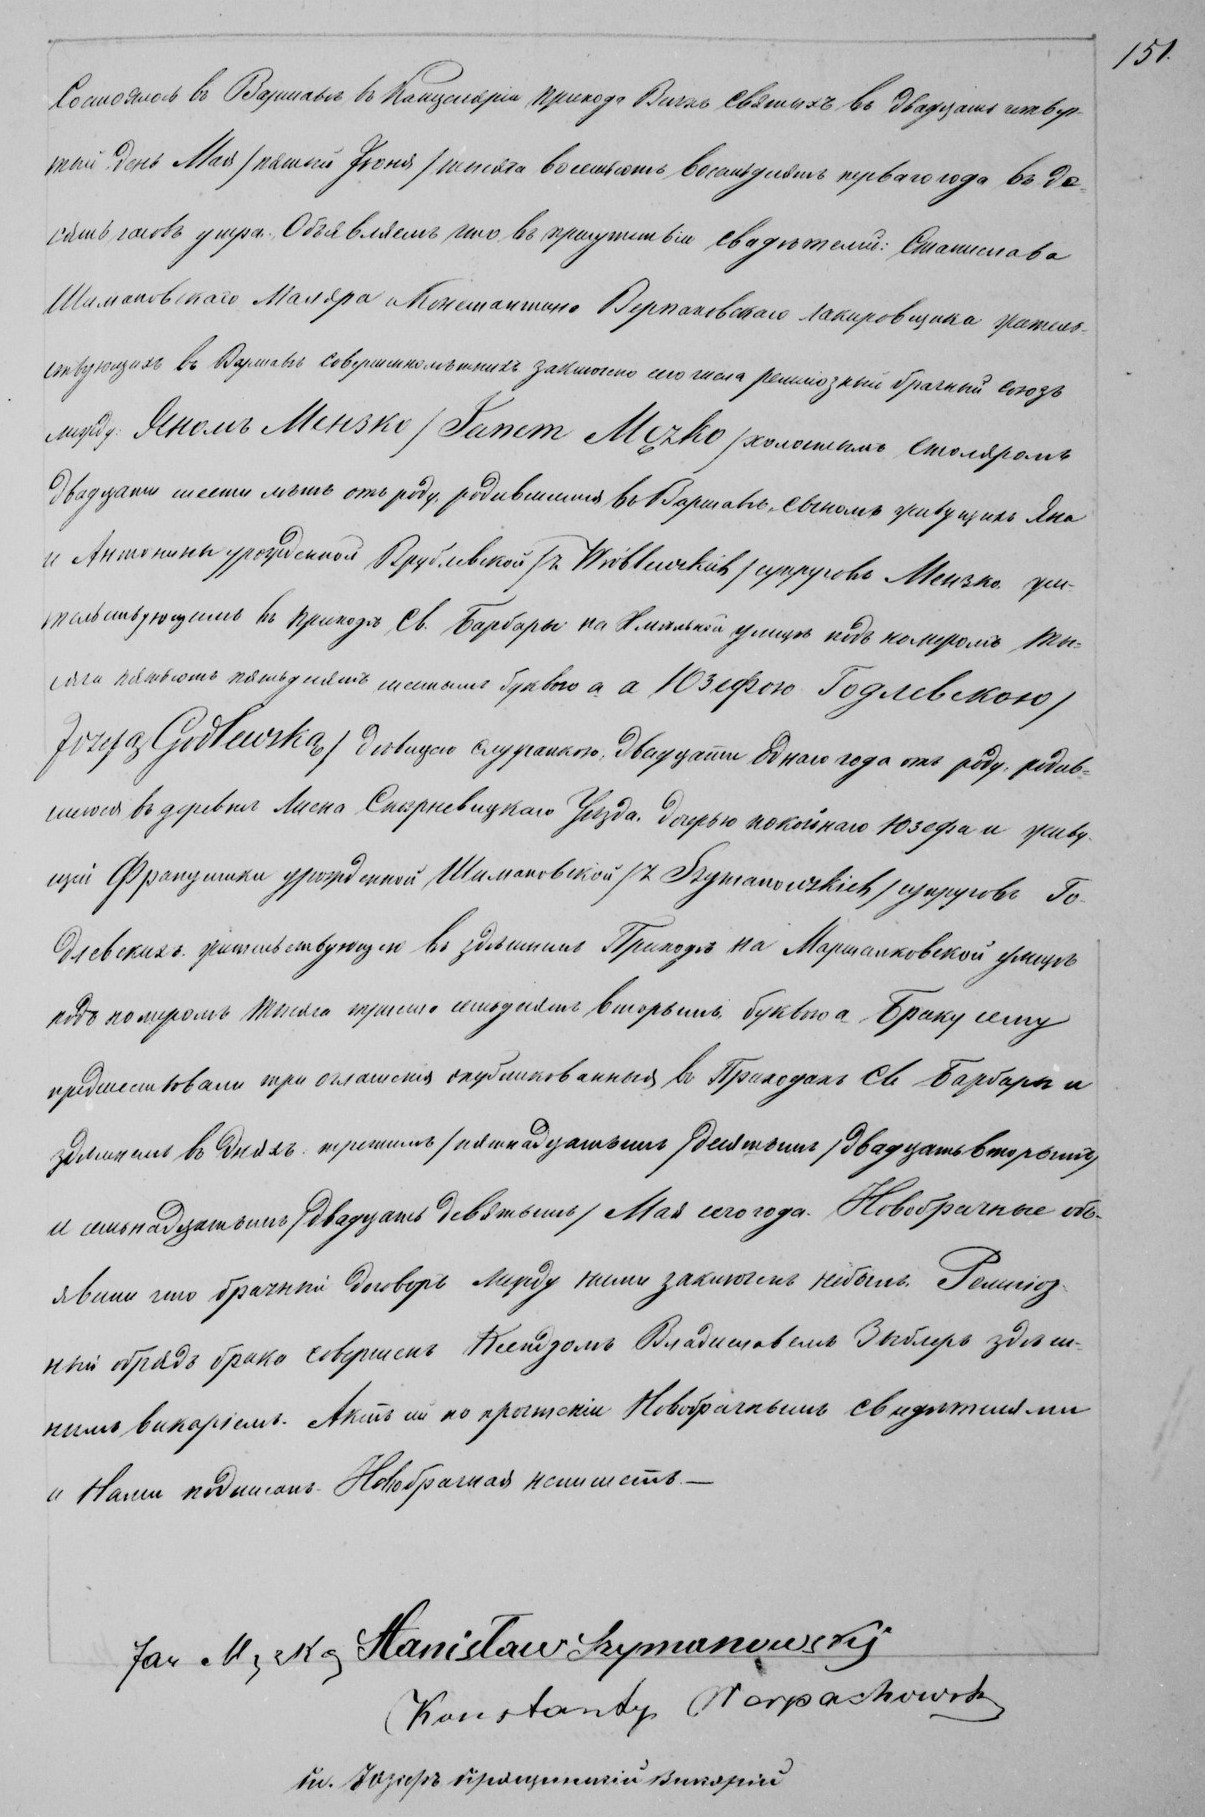 151.
Состоялось въ Варшавѣ въ Канцеляріи прихода Всѣхъ Святыхъ въ двадцать четвер-
тый день Мая / пятый Іюня / тысяча восемьсотъ восемьдесятъ перваго года въ де-
сять часовъ утра. Объявляемъ что въ присутствіи свидѣтелей: Станислава
Шимановскаго Маляра и Константина Верпаховскаго лакировщика житель-
ствующихъ въ Варшавѣ совершеннолѣтнихъ заключено сего числа религіозный брачный союзъ
между: Яномъ Мензко / Janem Męzko / холостымъ столяромъ
двадцати шести лѣтъ отъ роду, родившимся въ Варшавѣ, сыномъ живущихъ Яна
и Антонины урожденной Врублевской / z Wróblewskich / супруговъ Мензко жи-
тельствующимъ въ приходѣ Св. Барбары на улицѣ подъ номеромъ ты-
сяча пятьсотъ пятьдесятъ шестымъ буквою а а Юзефою Годлевскою /
Józefą Godlewską / дѣвицею служанкою, двадцати одного года отъ роду, родив-
шеюся въ деревнѣ Лисна Скерневицкаго Уѣзда, дочерью покойнаго Юзефа и живу-
щей Францишки урожденной Шимановской / z Szymanowskich / супруговъ Го-
длевскихъ жительствующею въ здѣшнемъ Приходѣ на Маршалковской улицѣ
подъ номеромъ тысяча триста семьдесятъ вторымъ буквою а Браку сему
предшествовали три оглашенія опубликованныя въ Приходахъ Св Барбары и
здѣшнемъ въ дняхъ третьемъ / пятнадцатымъ / десятымъ / двадцать вторымъ /
и семьнадцатымъ / двадцать девятымъ / Мая сего года. Новобрачные объ-
явили что брачный договоръ между ними заключенъ небылъ. Религіоз-
ный обрядъ брака совершенъ Ксендзомъ Владиславомъ Зыблеръ здѣш-
нимъ викаріемъ. Актъ сей по прочтеніи Новобрачнымъ свидѣтелями
и Нами подписанъ Новобрачная непишетъ.—
Jan Męzko Stanisław Szymanowskij
Konstanty Werpachowski
Кс. Іозефъ Викарій